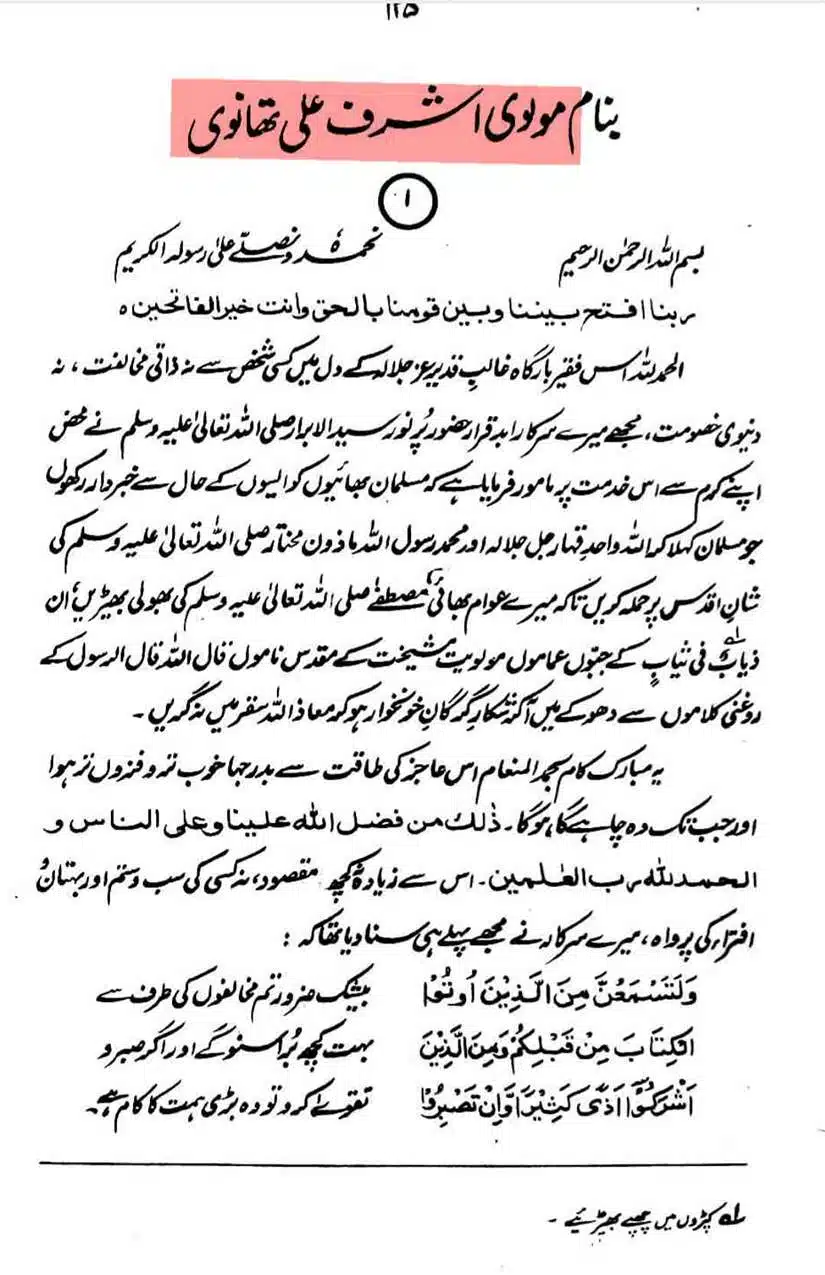 ۱۲۵
بنام مولوی اشرف علی تھانوی
۱
بسم اللہ الرحمٰن الرحیم نحمدہٗ ونصلے علیٰ رسولہ الکریم
ربنا افتح بیننا وبین قومنا بالحق وانت خیر الفاتحین ہ
الحمدللہ اس فقیر بارگاہ غالب قدیر عز جلالہ کے دل میں کسی شخص سے نہ ذاتی مخالفت، نہ
دنیوی خصومت، مجھے میرے سرکار ابد قرار حضور پُر نور سید الابرار صلی اللہ تعالیٰ علیہ وسلم نے محض
اپنے کرم سے اس خدمت پر مامور فرمایا ہے کہ مسلمان بھائیوں کو ایسوں کے حال سے خبردار رکھوں
جو مسلمان کہلا کر اللہ واحد قہار جل جلالہ اور محمد رسول اللہ ماذون مختار صلی اللہ تعالیٰ علیہ وسلم کی
شان اقدس پر حملہ کریں تاکہ میرے عوام بھائی مصطفےٰ صلی اللہ تعالیٰ علیہ وسلم کی بھولی بھیڑیں، ان
ذیابٌ فی ثیابٍ ۱ے کے جبّوں عماموں مولویت مشیخت کے مقدس ناموں قال اللہ قال الرسول کے
روغنی کلاموں سے دھوکے میں آکر شکار گرگان خونخوار ہو کر معاذ اللہ سقر میں نہ گریں۔
یہ مبارک کام بحمد المنعام اس عاجز کی طاقت سے بدرجہا خوب تر و فزوں تر ہوا
اور جب تک وہ چاہے گا ہوگا۔ ذٰلک من فضل اللہ علینا وعلی الناس و
الحمدللہ رب العٰلمین۔ اس سے زیادہ کچھ مقصود، نہ کسی کی سب و ستم اور بہتان و
افتراء کی پرواہ، میرے سرکار نے مجھے پہلے ہی سنا دیا تھا کہ :
وَلَتَسْمَعُنَّ مِنَ الَّذِيْنَ اُوتُوا بیشک ضرور تم مخالفوں کی طرف سے
الْكِتَابَ مِنْ قَبْلِكُمْ وَمِنَ الَّذِيْنَ بہت کچھ بُرا سنو گے اور اگر صبر و
اَشْرَكُوْٓا اَذًى كَثِيْرًا وَّاِنْ تَصْبِرُوْا تقوے کرو تو وہ بڑی ہمت کا کام ہے۔
۱ے کپڑوں میں چھپے بھیڑیئے۔